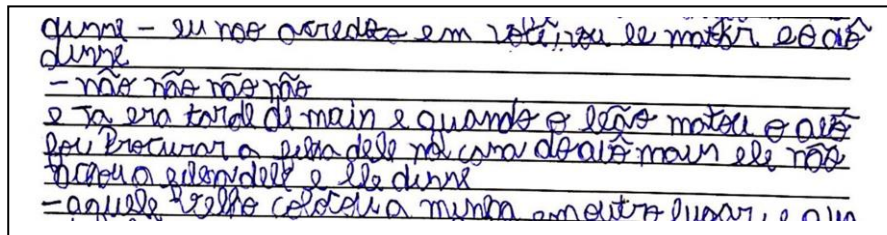 dinne - eu não acredito em você, vou le matar e o avô
dinne
- não não não não
e ja era tarde de main e quando o leão matou o avô
foi Procurar a dele na casa do avô mais ele não
achou a dele e ele dinne
- aquele velho colocou a minha em outro lugar, e